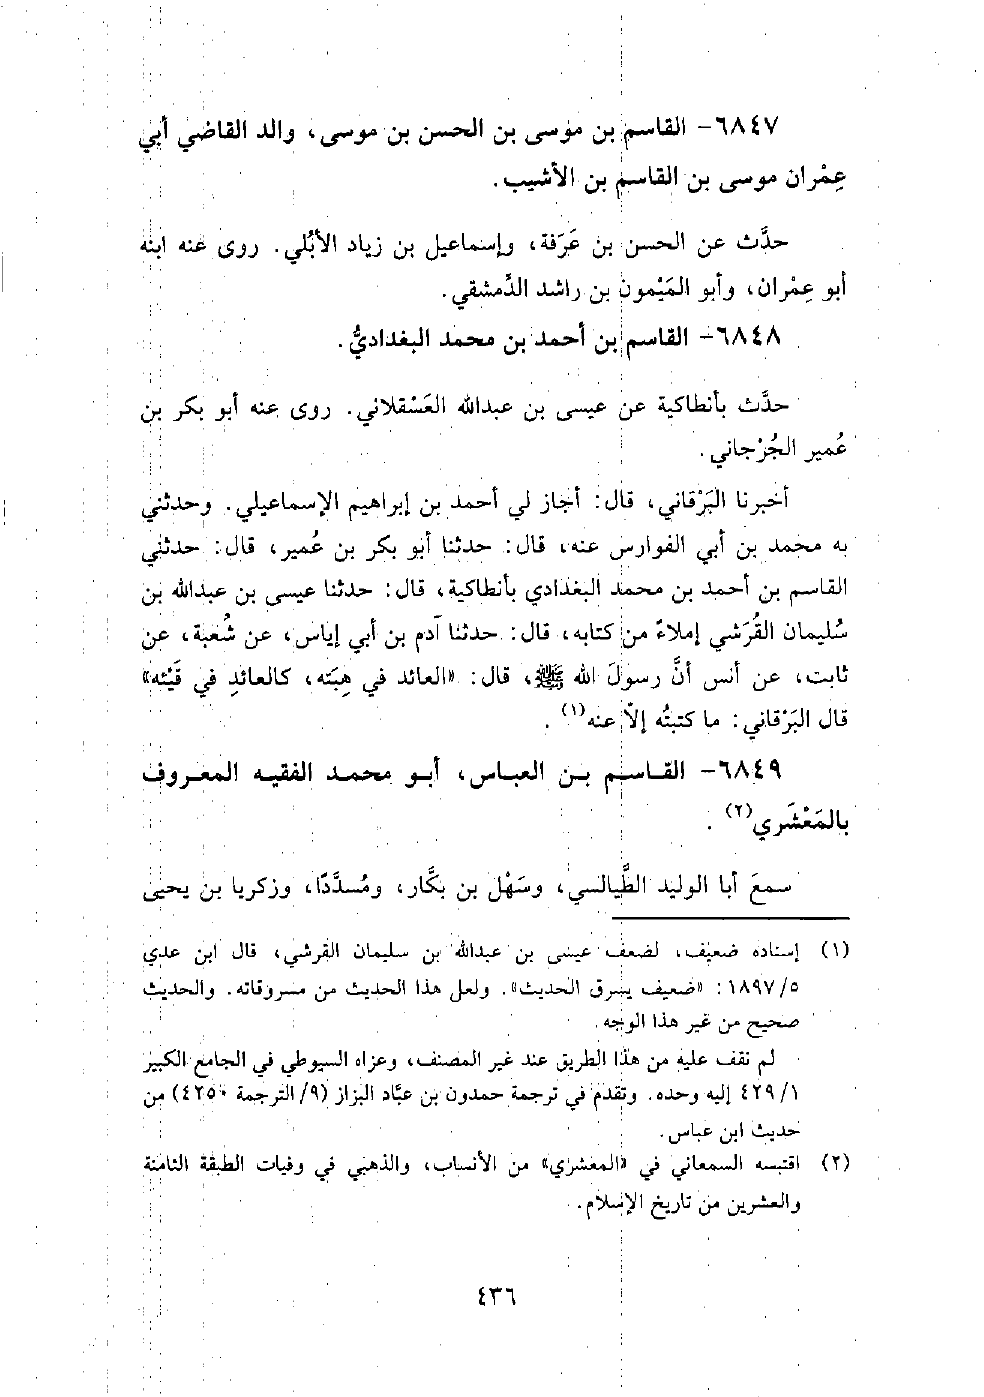 ٦٨٤٧- القاسم بن موسى بن الحسن بن موسى، والد القاضي أبي
عِمْران موسى بن القاسم بن الأشيب.
حدَّث عن الحسن بن عَرَفة، وإسماعيل بن زياد الأُبُلي. روى عنه ابنه
أبو عِمْران، وأبو المَيْمون بن راشد الدِّمشقي.
٦٨٤٨- القاسم بن أحمد بن محمد البغداديُّ.
حدَّث بأنطاكية عن عيسى بن عبدالله العَسْقلاني. روى عنه أبو بكر بن
عُمير الجُرْجاني.
أخبرنا البَرْقاني، قال: أجاز لي أحمد بن إبراهيم الإسماعيلي. وحدثني
به محمد بن أبي الفوارس عنه، قال: حدثنا أبو بكر بن عُمير، قال: حدثني
القاسم بن أحمد بن محمد البغدادي بأنطاكية، قال: حدثنا عيسى بن عبدالله بن
سُليمان القُرَشي إملاءً من كتابه، قال: حدثنا آدم بن أبي إياس، عن شُعبة، عن
ثابت، عن أنس أنَّ رسولَ الله ﷺ، قال: «العائد في هِبَته، كالعائدِ في قَيْئه»
قال البَرْقاني: ما كتبتُه إلاَّ عنه(١).
٦٨٤٩- القاسم بن العباس، أبو محمد الفقيه المعروف
بالمَعْشَري(٢).
سمعَ أبا الوليد الطَّيالسي، وسَهْل بن بكَّار، ومُسدَّدًا، وزكريا بن يحيى
(١) إسناده ضعيف، لضعف عيسى بن عبدالله بن سليمان القرشي، قال ابن عدي
٥/ ١٨٩٧: «ضعيف يسرق الحديث». ولعل هذا الحديث من مسروقاته. والحديث
صحيح من غير هذا الوجه.
لم نقف عليه من هذا الطريق عند غير المصنف، وعزاه السيوطي في الجامع الكبير
١/ ٤٢٩ إليه وحده. وتقدم في ترجمة حمدون بن عبَّاد البزاز (٩/ الترجمة ٤٢٥٠) من
حديث ابن عباس.
(٢) اقتبسه السمعاني في «المعشري» من الأنساب، والذهبي في وفيات الطبقة الثامنة
والعشرين من تاريخ الإسلام.
٤٣٦